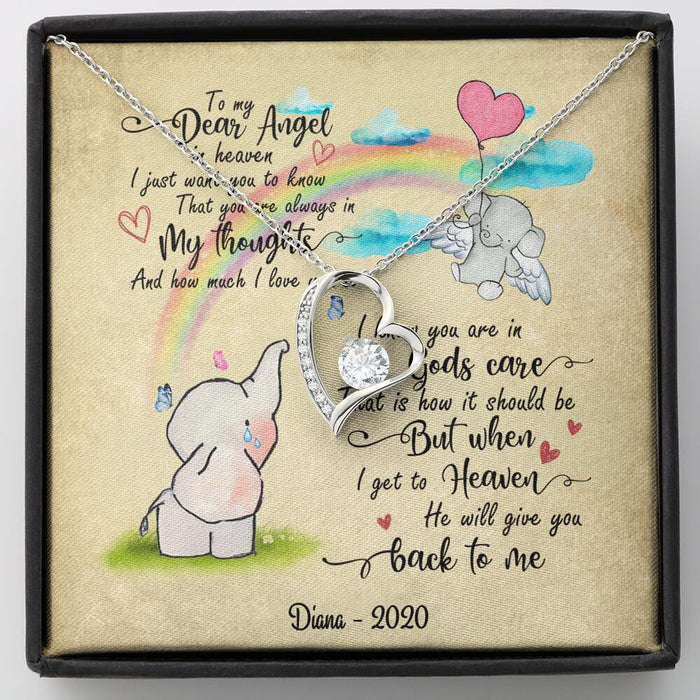 To my
Dear Angel
in heaven
I just want you to know
That you are always in
My thoughts
And how much I love
I know you are in
gods care
That is how it should be
But when
I get to Heaven
He will give you
back to me
Diana - 2020